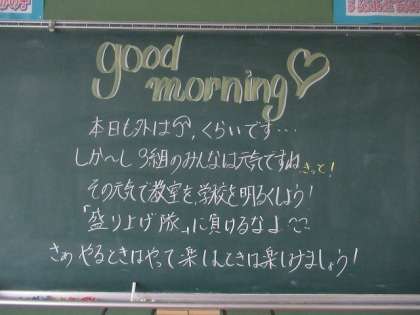 good
morning♡
本日も外は☂、くらいです…
しか〜し 3組のみんなは元気ですね きっと!
その元気で教室を、学校を明るくしよう!
「盛り上げ隊」に負けるなよ
さぁ やるときはやって 楽しむときは楽しみましょう!